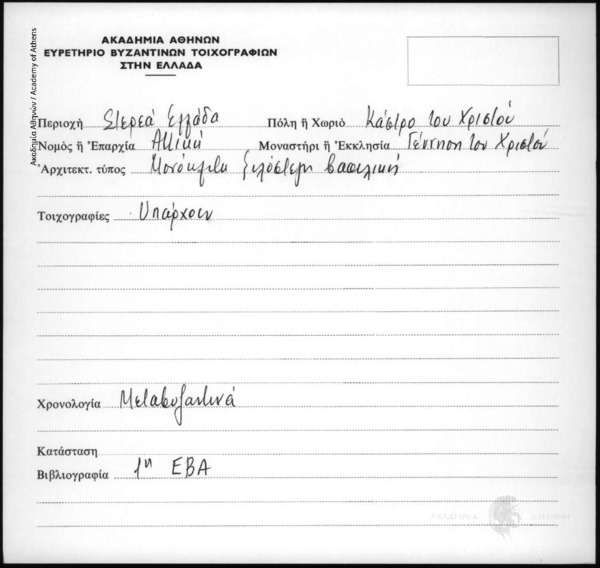 ΑΚΑΔΗΜΙΑ ΑΘΗΝΩΝ
ΕΥΡΕΤΗΡΙΟ ΒΥΖΑΝΤΙΝΩΝ ΤΟΙΧΟΓΡΑΦΙΩΝ
ΣΤΗΝ ΕΛΛΑΔΑ
Ακαδημία Αθηνών / Academy of Athens
Περιοχή Στερεά Ελλάδα Πόλη ἤ Χωριό Κάστρο του Χριστού
Νομός ἤ Ἐπαρχία Αττική Μοναστήρι ἤ Ἐκκλησία Γέννηση του Χριστού
Ἀρχιτεκτ. τύπος Μονόκλιτη ξυλόστεγη βασιλική
Τοιχογραφίες Υπάρχουν
Χρονολογία Μεταβυζαντινά
Κατάσταση
Βιβλιογραφία 1η ΕΒΑ